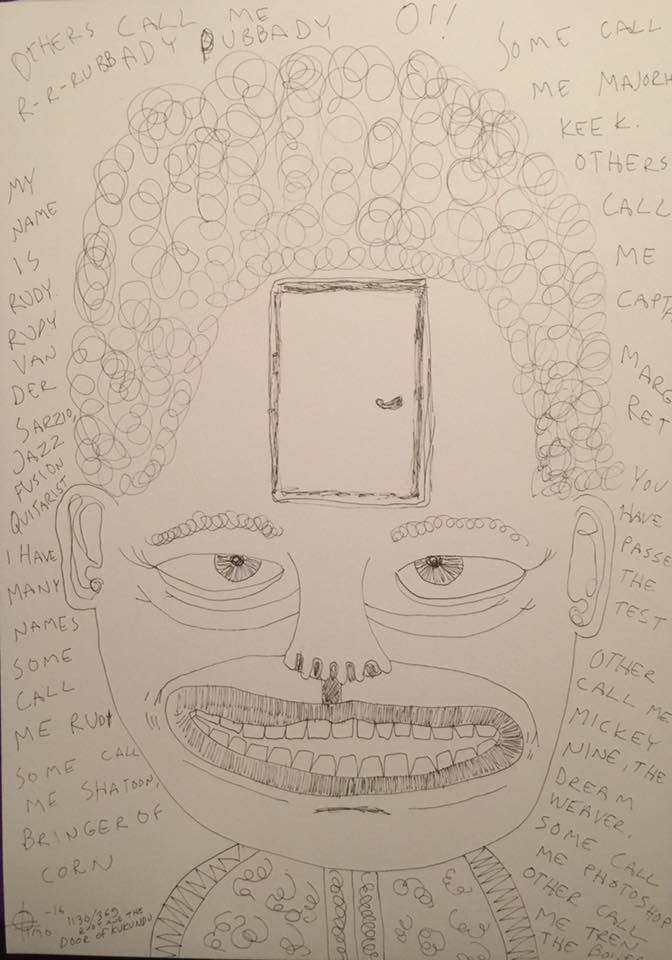 OTHERS CALL ME
R-R-RUBBADY PUBBADY
OI!
MY
NAME
IS
RUDY.
RUDY
VAN
DER
SARZIO,
JAZZ
FUSION
QUITARIST
I HAVE
MANY
NAMES
SOME
CALL
ME RUDY
SOME CALL
ME SHATOON,
BRINGER OF
CORN
SOME CALL
ME MAJORH
KEEK.
OTHERS
CALL
ME
CAPTA
MARG
RET
YOU
HAVE
PASSE
THE
TEST
OTHER
CALL ME
MICKEY
NINE, THE
DREAM
WEAVER.
SOME CALL
ME PHOTOSHOP
OTHER CALL
ME TREN
THE
-16
130/365
RUDY AND THE
DOOR OF KUKUNDU